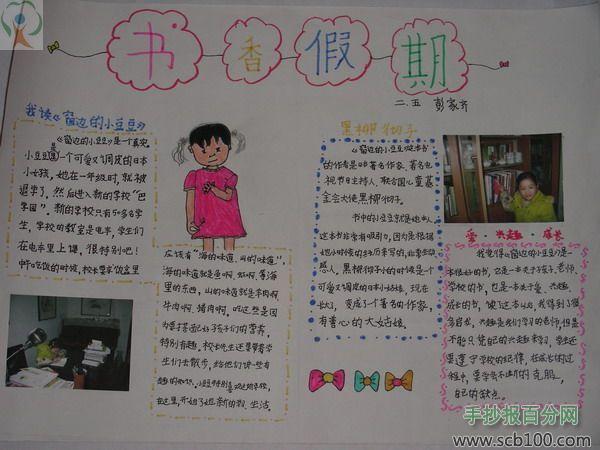 书香假期
二.五 彭家齐
我读《窗边的小豆豆》
《窗边的小豆豆》是一个真实
小豆豆是一个可爱又调皮的日本
小女孩,她在一年级时,就被
退学了,然后进入新的学校"巴
学园"。新的学校只有50多名学
生,学校的教室是电车,学生们
在电车里上课,很特别吧!
中午吃饭的时候,校长要求饭盒里
应该有"海的味道,山的味道",
海的味道就是鱼啊,虾啊,等海
里的东西,山的味道就是羊肉啊,
牛肉啊,猪肉啊,吃这些是因
为要搭配好孩子们的营养,
特别有趣。校长先生还要带学
生们去散步,给他们讲一些有
趣的知识。小豆豆特别喜欢这所学校,
在这里,开始了她新的
生活。
黑柳彻子
《窗边的小豆豆》这本书
的作者是日本著名作家、著名电
视节目主持人、联合国儿童基
金会大使黑柳彻子。
书中的小豆豆就是她本人。
这本书非常有吸引力,因为是根据
她小时候的
感人。黑柳彻子小的时候是个
可爱又调皮的日本小姑娘,现在
变成了个著名的作家,
有善心的大姑娘。
爱·兴趣·成长
我觉得《窗边的小豆豆》是一
本很好的书,它是一本关于孩子,老师,
学校的书,也是一本关于爱、兴趣、
成长的书,读了这本书,我得到了很
多启发,兴趣是我们学习的老师,但是
不能只凭自己的兴趣来学习,学生还
要遵守学校的纪律,在成长的过
程中,要学会不断的克服
自己的缺点。
手抄报百分网
www.scb100.com